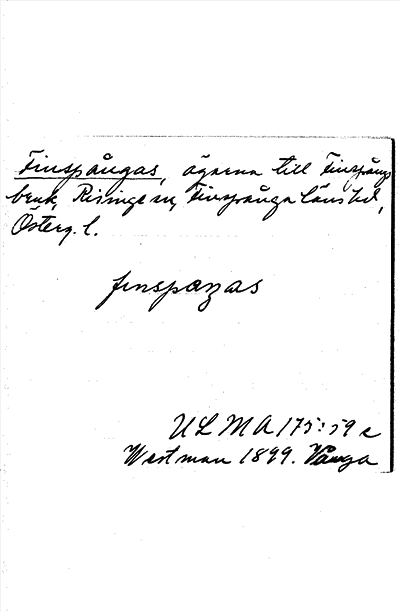 Finspångas, ägarna till Finspångs
bruk, Risinge sn, Finspånga läns hd,
Österg. l.
finspaŋas
ULMA 175:59 c
Westman 1899. Vånga